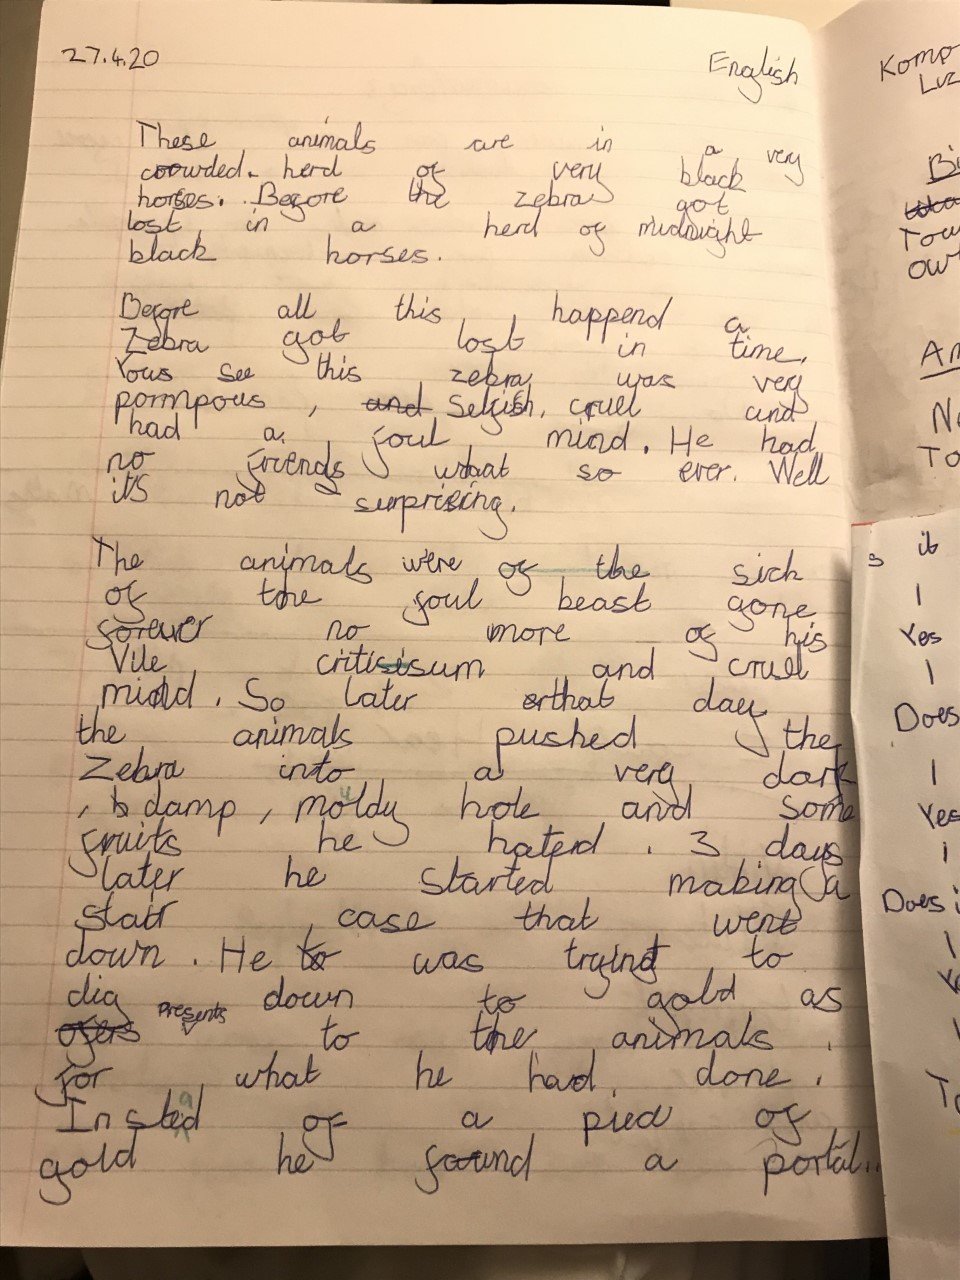 27.4.20
English
These animals are in a very
crowded. herd of very black
horses. Before the zebra got
lost in a herd of midnight
black horses.
Before all this happend a
Zebra got lost in time.
Yous see this zebra was very
pormpous , and selfish, cruel and
had a foul mind. He had
no friends what so ever. Well
it's not surprising.
The animals were of the sick
of the foul beast gone
forever no more of his
Vile critisisum and cruel
mind. So later that day
the animals pushed the
Zebra into a very dark
, damp , mouldy hole and some
fruits he hated . 3 days
later he started making a
stair case that went
down . He to was trying to
dig down to gold as
ofers Presents to the animals .
for what he had done .
Instead of a pied of
gold he found a portal..
Komp
Luz
Tow
Ow
An
Ne
To
s it
1
Yes
1
Does
1
Yes
1
Does i
1
To